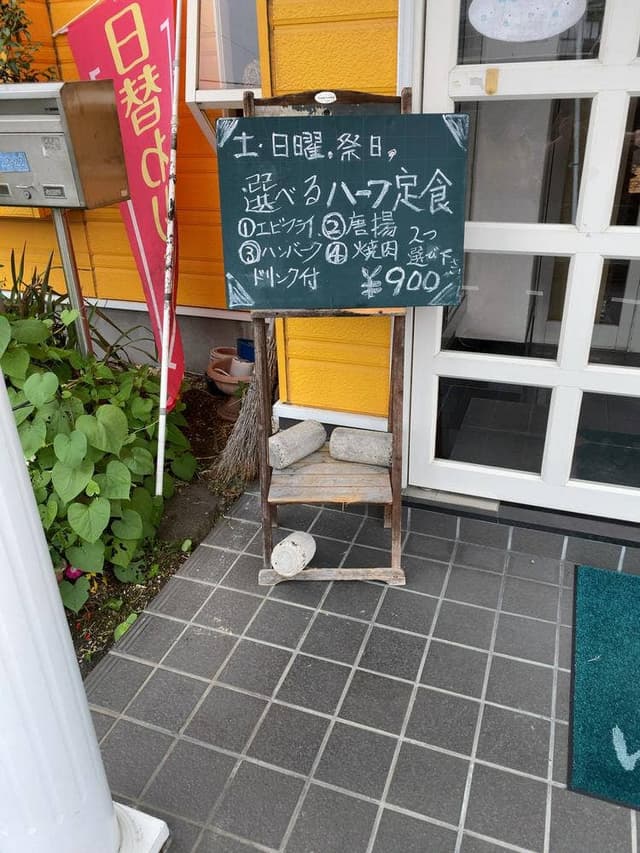 日替わり
土・日曜.祭日,
選べるハーフ定食
①エビフライ、②唐揚
③ハンバーク④焼肉
2つ
選び下さい
ドリンク付
¥900